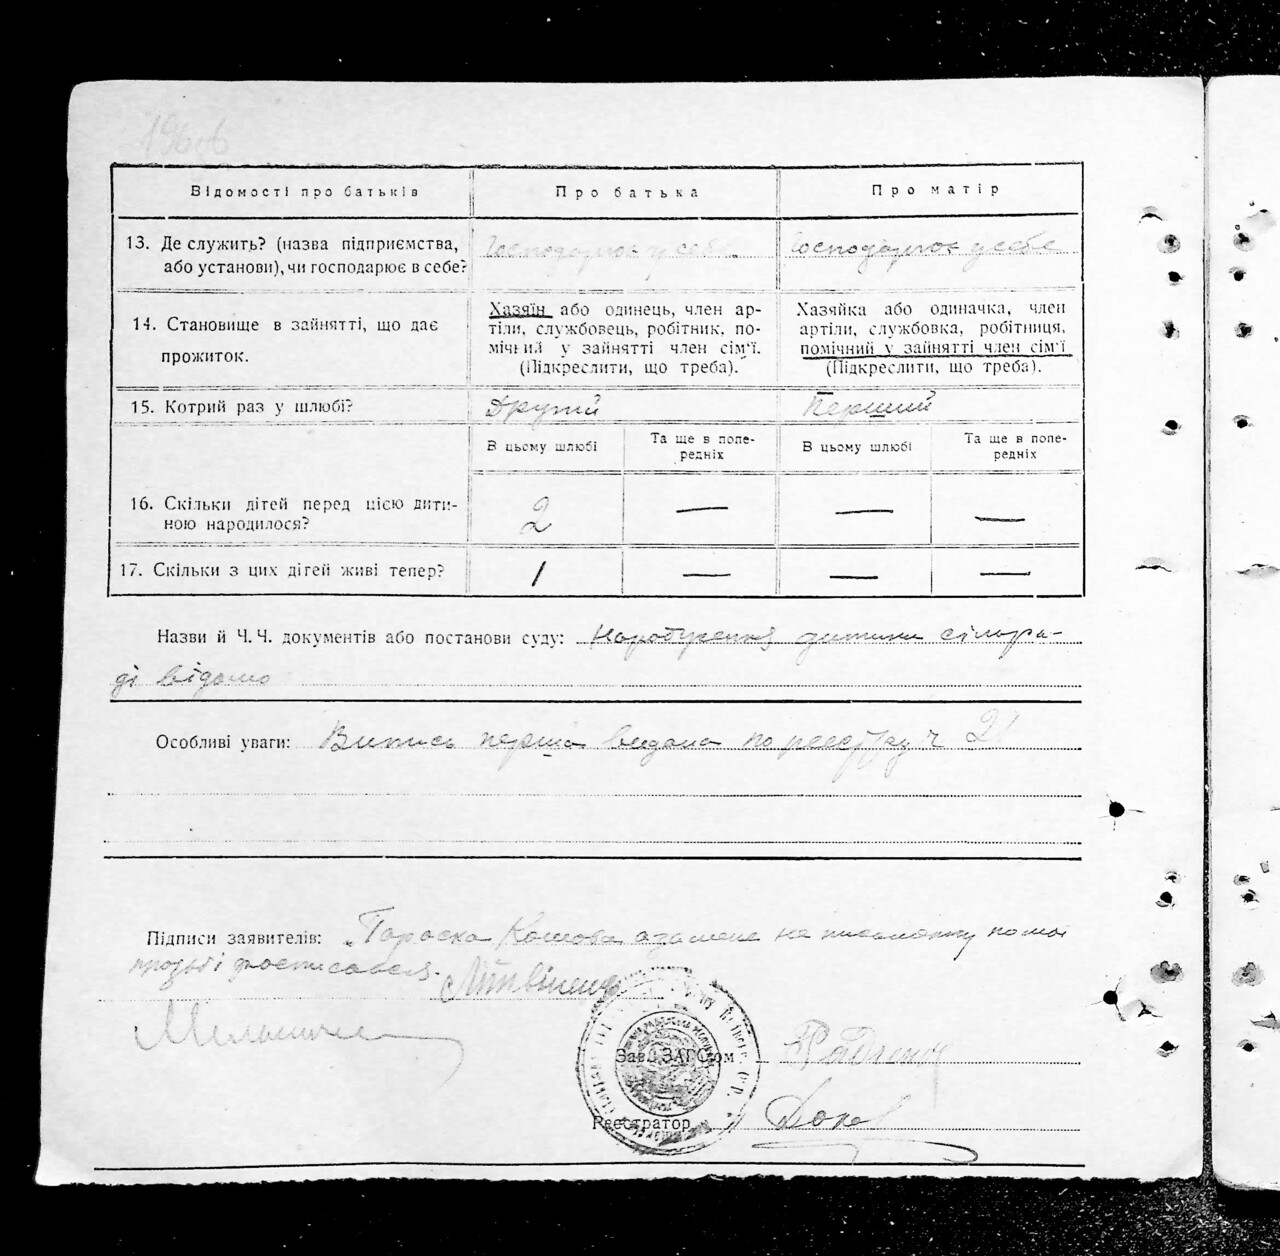 Відомості про батьків
Про батька
Про матір
13. Де служить? (назва підприємства,
або установи), чи господарює в себе?
Господарює у себе
Господарює у себе
14. Становище в зайнятті, що дає
прожиток.
Хазяїн або одинець, член ар-
тіли, службовець, робітник, по-
мічний у зайнятті член сім'ї.
(Підкреслити, що треба).
Хазяйка або одиначка, член
артіли, службовка, робітниця,
помічний у зайнятті член сім'ї
(Підкреслити, що треба).
15. Котрий раз у шлюбі?
Другий
Перший
В цьому шлюбі
Та ще в попе-
редніх
В цьому шлюбі
Та ще в попе-
редніх
16. Скільки дітей перед цією дити-
ною народилося?
2 — — —
17. Скільки з цих дітей живі тепер?
1 — — —
Назви й Ч.Ч. документів або постанови суду: дитини сільра-
ді відомо
Особливі уваги: Випись перша видана по реєстру ч 21
Підписи заявителів: Параска за неписьменну
Зав. ЗАГС'ом
Реєстратор